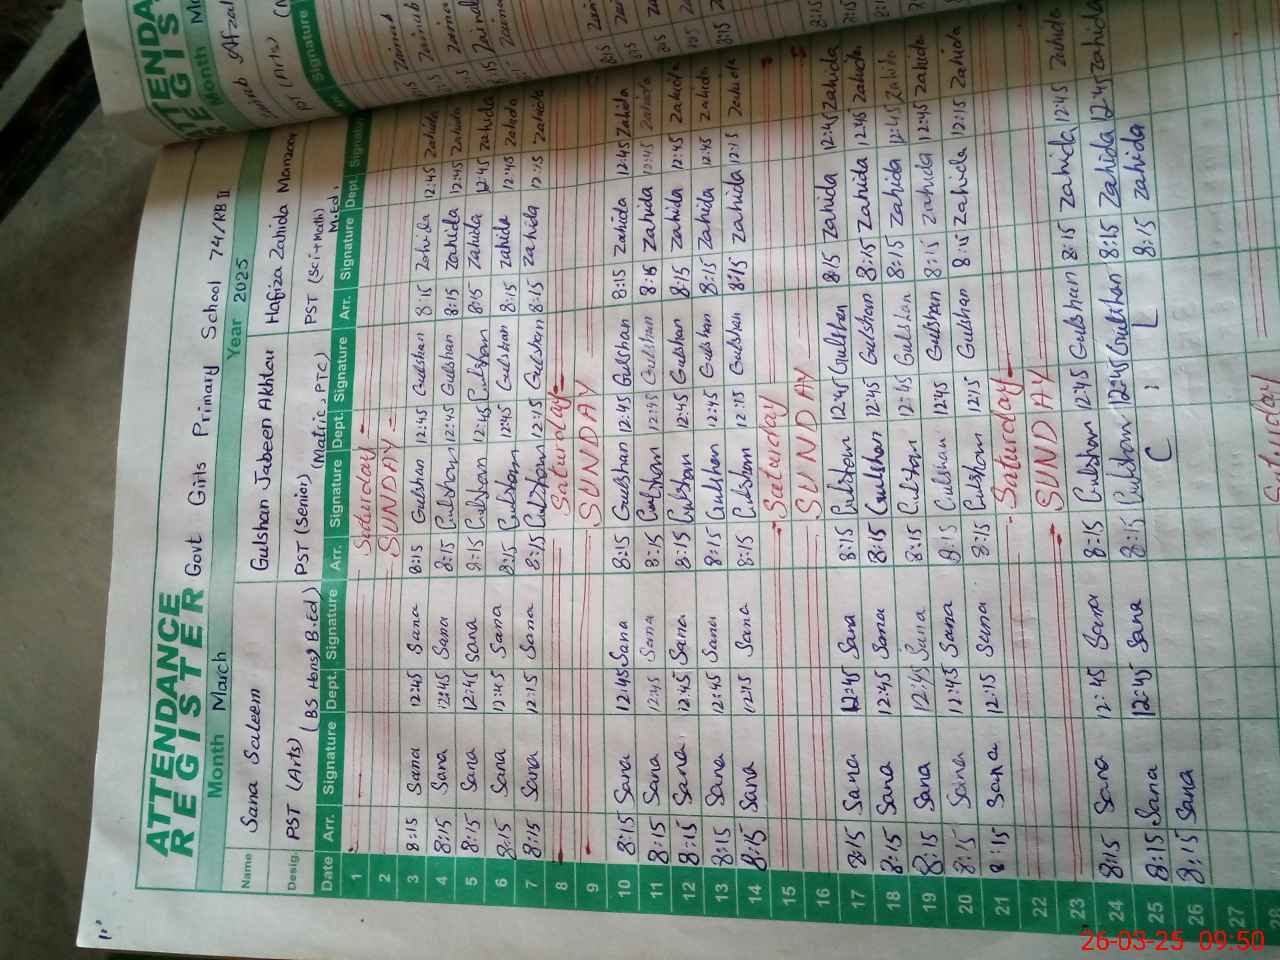 ATTENDANCE
REGISTER
Govt Girls Primary School 74/RB II
Month March Year 2025
Name Sana Saleem Gulshan Jabeen Akhtar Hafiza Zahida Manzoor
Desig. PST (Arts) (BS Hons) B.Ed) PST (Senior) (Matric, PTC) PST (Sci+Math) M.Ed.
Date Arr. Signature Dept. Signature Arr. Signature Dept. Signature Arr. Signature Dept. Signature
1 Saturday
2 SUNDAY
3 8:15 Sana 12:45 Sana 8:15 Gulshan 12:45 Gulshan 8:15 Zahida 12:45 Zahida
4 8:15 Sana 12:45 Sana 8:15 Gulshan 12:45 Gulshan 8:15 Zahida 12:45 Zahida
5 8:15 Sana 12:45 Sana 8:15 Gulshan 12:45 Gulshan 8:15 Zahida 12:45 Zahida
6 8:15 Sana 12:45 Sana 8:15 Gulshan 12:45 Gulshan 8:15 Zahida 12:45 Zahida
7 8:15 Sana 12:15 Sana 8:15 Gulshan 12:15 Gulshan 8:15 Zahida 12:15 Zahida
8 Saturday
9 SUNDAY
10 8:15 Sana 12:45 Sana 8:15 Gulshan 12:45 Gulshan 8:15 Zahida 12:45 Zahida
11 8:15 Sana 12:45 Sana 8:15 Gulshan 12:45 Gulshan 8:15 Zahida 12:45 Zahida
12 8:15 Sana 12:45 Sana 8:15 Gulshan 12:45 Gulshan 8:15 Zahida 12:45 Zahida
13 8:15 Sana 12:45 Sana 8:15 Gulshan 12:45 Gulshan 8:15 Zahida 12:45 Zahida
14 8:15 Sana 12:15 Sana 8:15 Gulshan 12:15 Gulshan 8:15 Zahida 12:15 Zahida
15 Saturday
16 SUNDAY
17 8:15 Sana 12:45 Sana 8:15 Gulshan 12:45 Gulshan 8:15 Zahida 12:45 Zahida
18 8:15 Sana 12:45 Sana 8:15 Gulshan 12:45 Gulshan 8:15 Zahida 12:45 Zahida
19 8:15 Sana 12:45 Sana 8:15 Gulshan 12:45 Gulshan 8:15 Zahida 12:45 Zahida
20 8:15 Sana 12:45 Sana 8:15 Gulshan 12:45 Gulshan 8:15 Zahida 12:45 Zahida
21 8:15 Sana 12:15 Sana 8:15 Gulshan 12:15 Gulshan 8:15 Zahida 12:15 Zahida
22 Saturday
23 SUNDAY
24 8:15 Sana 12:45 Sana 8:15 Gulshan 12:45 Gulshan 8:15 Zahida 12:45 Zahida
25 8:15 Sana 12:45 Sana 8:15 Gulshan 12:45 Gulshan 8:15 Zahida 12:45 Zahida
26 8:15 Sana C : L 8:15 Zahida
27
28
Saturday
26-03-25 09:50